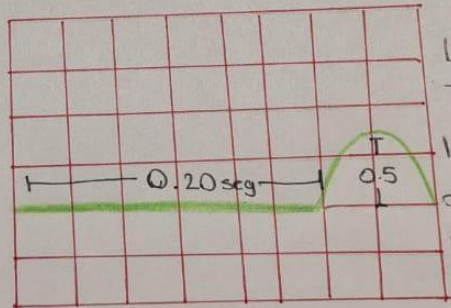 0.20 seg
0.5